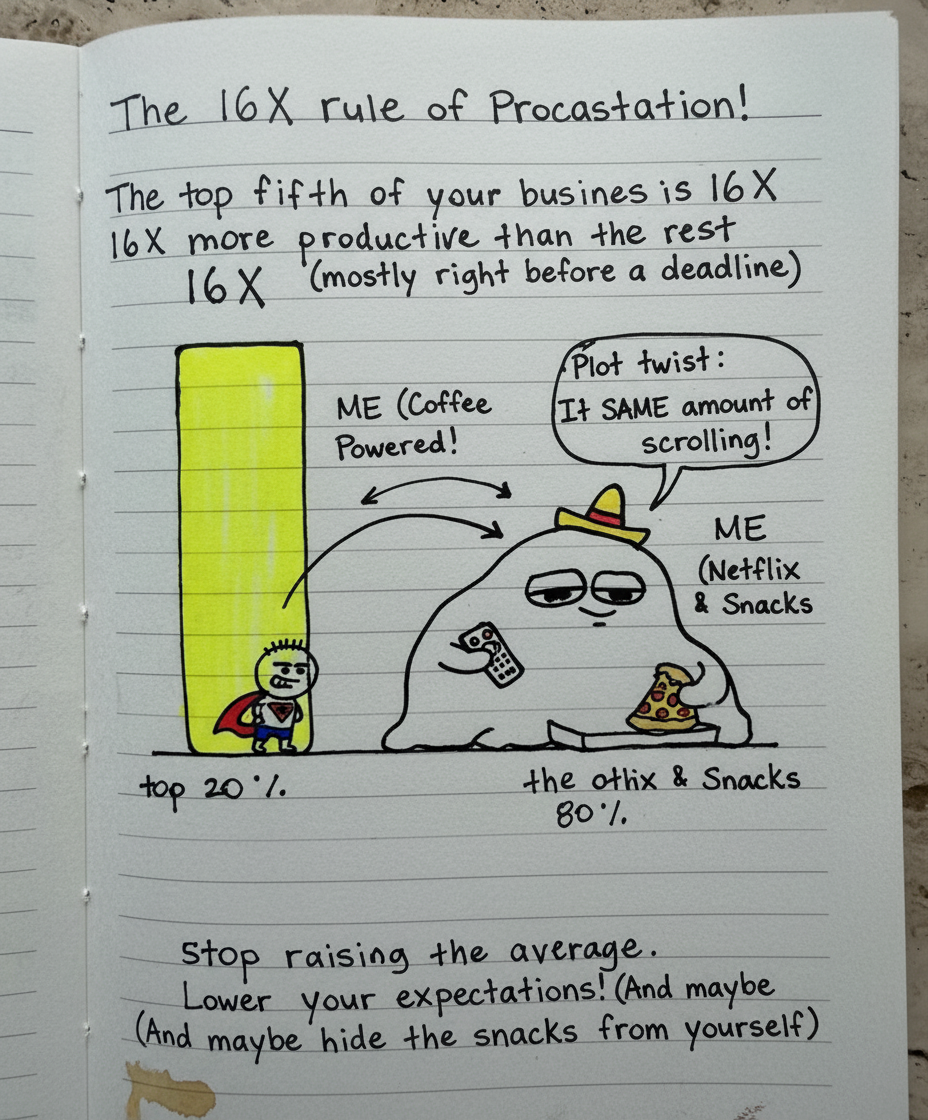 The 16X rule of Procastation!
The top fifth of your busines is 16X
16X more productive than the rest
16X (mostly right before a deadline)
Plot twist:
It SAME amount of
scrolling!
ME (Coffee
Powered!
ME
(Netflix
& Snacks
top 20%
the othix & Snacks
80%
Stop raising the average.
Lower your expectations! (And maybe
(And maybe hide the snacks from yourself)